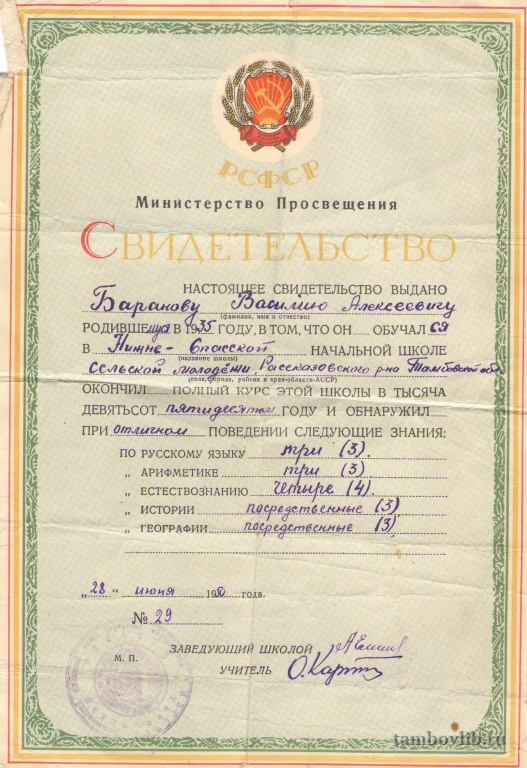 РСФСР
Министерство Просвещения
СВИДЕТЕЛЬСТВО
НАСТОЯЩЕЕ СВИДЕТЕЛЬСТВО ВЫДАНО
Баранову Василию Алексеевичу
(фамилия, имя и отчество)
РОДИВШЕмуся В 1935 ГОДУ, В ТОМ, ЧТО ОН ОБУЧАЛСЯ
В Нижне-Спасской НАЧАЛЬНОЙ ШКОЛЕ
(название школы)
сельской молодёжи, Рассказовского р-на Тамбовской обл
(села, города, района и края-области-АССР)
ОКОНЧИЛ ПОЛНЫЙ КУРС ЭТОЙ ШКОЛЫ В ТЫСЯЧА
ДЕВЯТЬСОТ пятидесятом ГОДУ И ОБНАРУЖИЛ
ПРИ отличном ПОВЕДЕНИИ СЛЕДУЮЩИЕ ЗНАНИЯ:
ПО РУССКОМУ ЯЗЫКУ три (3).
„ АРИФМЕТИКЕ три (3)
„ ЕСТЕСТВОЗНАНИЮ четыре (4).
„ ИСТОРИИ посредственные (3)
„ ГЕОГРАФИИ посредственные (3)
„28" июня 1950 года.
№ 29
ЗАВЕДУЮЩИЙ ШКОЛОЙ
М. П.
УЧИТЕЛЬ
tambovlib.ru